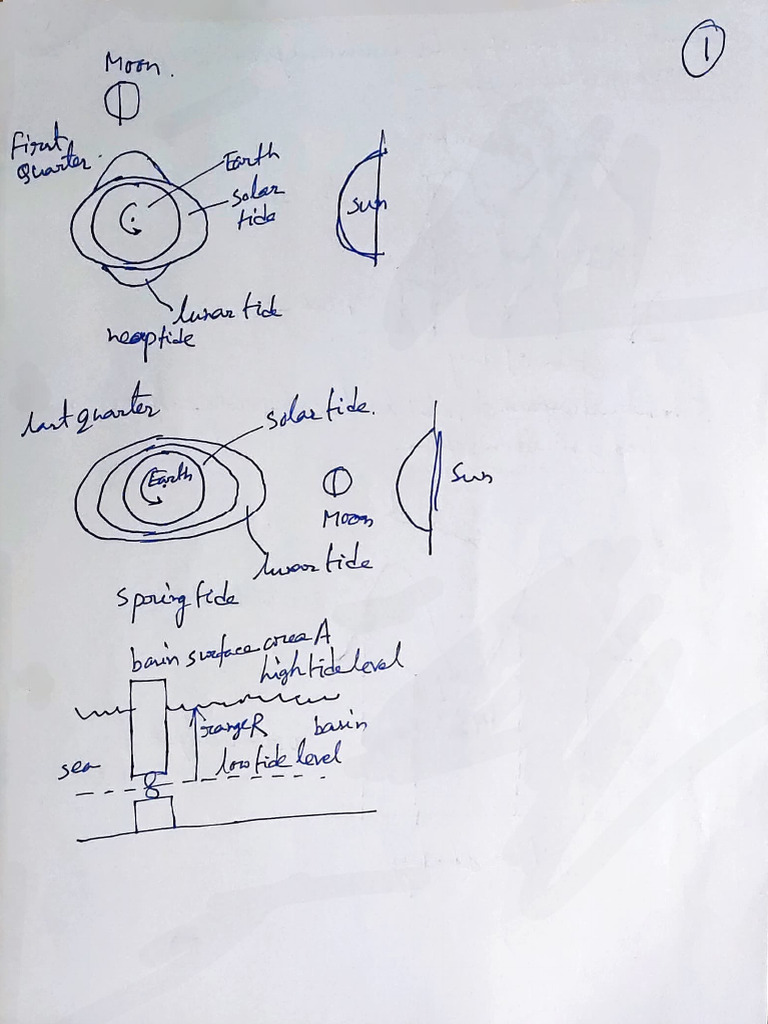 1
Moon.
First
Quarter.
Earth
Solar
tide
Sun
lunar tide
neaptide
last quarter
Solar tide.
Earth
Moon
Sun
lunar tide
Spring tide
basin surface area A
high tide level
range R
basin
sea
low tide level